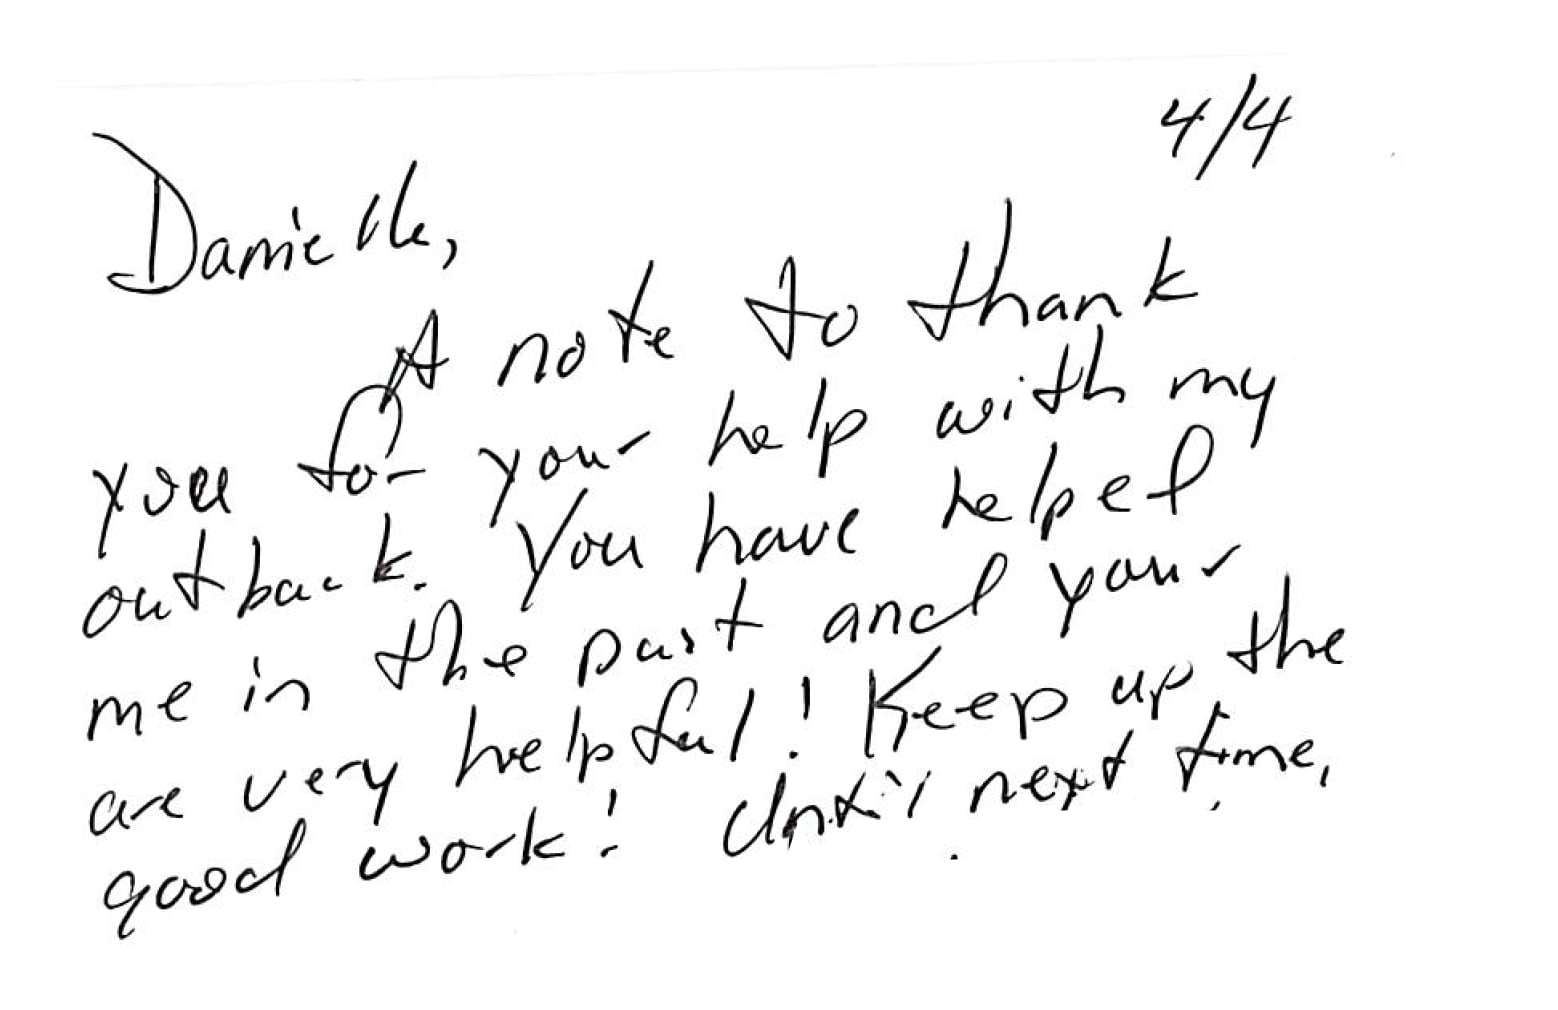 4/4
Danielle,
A note to thank
you for your help with my
outback. You have helped
me in the past and your
are very helpful! Keep up the
good work! Until next time,